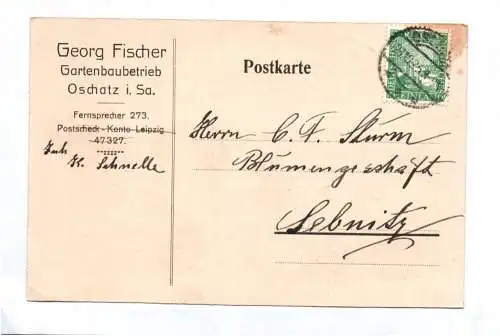 Georg Fischer
Gartenbaubetrieb
Oschatz i. Sa.
Fernsprecher 273.
Postscheck-Konto Leipzig
47327.
Inh H. Schnelle
Postkarte
Herrn C. F. Sturm
Blumengeschäft
Sebnitz